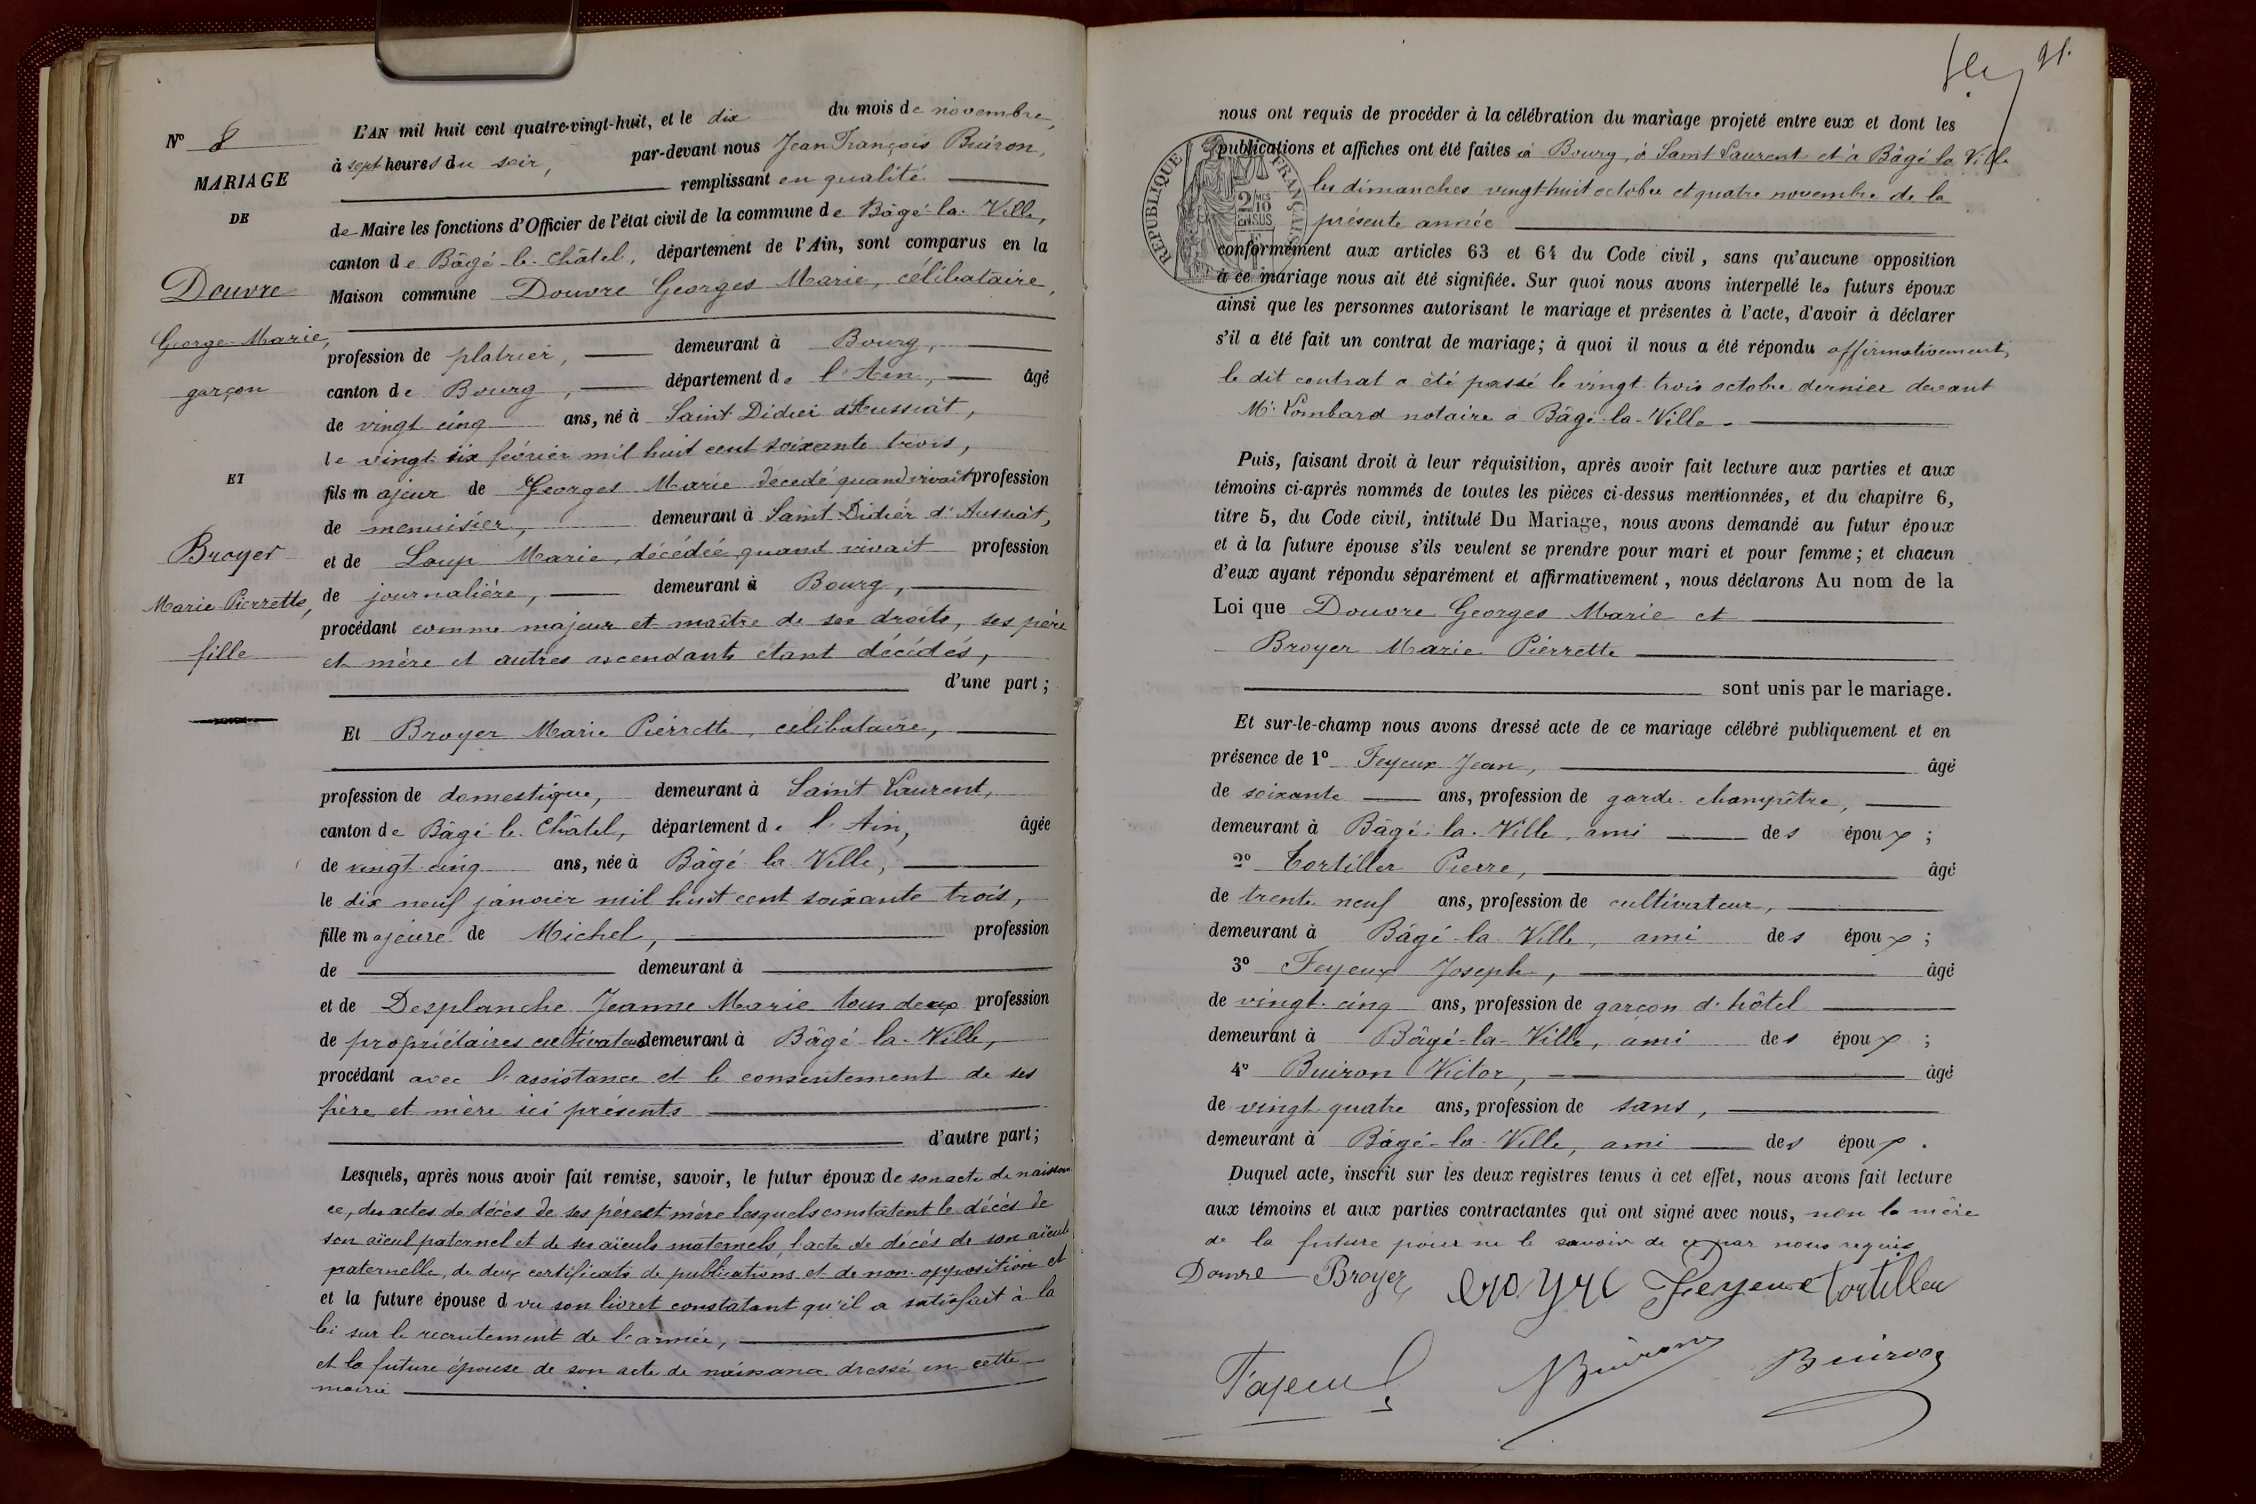 N° 8
MARIAGE
DE
Douvre
George Marie,
garçon
ET
Broyer
Marie Pierrette,
fille
L'AN mil huit cent quatre-vingt-huit, et le dix du mois de novembre,
à sept heures du soir, par-devant nous Jean François Buiron,
remplissant en qualité
de Maire les fonctions d'Officier de l'état civil de la commune de Bâgé-la-Ville,
canton de Bâgé-le-Châtel, département de l'Ain, sont comparus en la
Maison commune Douvre Georges Marie, célibataire,
profession de platrier, demeurant à Bourg,
canton de Bourg, département de l'Ain, âgé
de vingt cinq ans, né à Saint Didier d'Aussiat,
le vingt six février mil huit cent soixante trois,
fils majeur de Georges Marie décedé quand vivait profession
de menuisier, demeurant à Saint Didier d'Aussiat,
et de Loup Marie, décédée quand vivait profession
de journalière, demeurant à Bourg,
procédant comme majeur et maître de ses droits, ses père
et mère et autres ascendants étant décédés,
d'une part ;
Et Broyer Marie Pierrette, célibataire,
profession de domestique, demeurant à Saint Laurent,
canton de Bâgé-le-Châtel, département de l'Ain, âgée
de vingt-cinq ans, née à Bâgé la Ville,
le dix neuf janvier mil huit cent soixante trois,
fille majeure de Michel, profession
de demeurant à
et de Desplanche Jeanne Marie tous deux profession
de propriétaires cultivateurs demeurant à Bâgé-la-Ville,
procédant avec l'assistance et le consentement de ses
père et mère ici présents
d'autre part ;
Lesquels, après nous avoir fait remise, savoir, le futur époux de son acte de naissan
ce, des actes de décès de ses père et mère lesquels constatent le décès de
son aïeul paternel et de ses aïeuls maternels, l'acte de décès de son aïeule
paternelle, de deux certificats de publications et de non-opposition et
et la future épouse d vu son livret constatant qu'il a satisfait à la
loi sur le recrutement de l'armée,
et la future épouse de son acte de naissance dressé en cette
mairie
91.
nous ont requis de procéder à la célébration du mariage projeté entre eux et dont les
publications et affiches ont été faites à Bourg, à Saint Laurent et à Bâgé la Ville
les dimanches vingt-huit octobre et quatre novembre de la
présente année
RÉPUBLIQUE FRANÇAISE
2 MES 10 EN SUS
conformément aux articles 63 et 64 du Code civil, sans qu'aucune opposition
à ce mariage nous ait été signifiée. Sur quoi nous avons interpellé les futurs époux
ainsi que les personnes autorisant le mariage et présentes à l'acte, d'avoir à déclarer
s'il a été fait un contrat de mariage ; à quoi il nous a été répondu affirmativement,
le dit contrat a été passé le vingt trois octobre dernier devant
Me Lombard notaire à Bâgé-la-Ville.
Puis, faisant droit à leur réquisition, après avoir fait lecture aux parties et aux
témoins ci-après nommés de toutes les pièces ci-dessus mentionnées, et du chapitre 6,
titre 5, du Code civil, intitulé Du Mariage, nous avons demandé au futur époux
et à la future épouse s'ils veulent se prendre pour mari et pour femme ; et chacun
d'eux ayant répondu séparément et affirmativement, nous déclarons Au nom de la
Loi que Douvre Georges Marie et
Broyer Marie Pierrette
sont unis par le mariage.
Et sur-le-champ nous avons dressé acte de ce mariage célébré publiquement et en
présence de 1° Feyeux Jean, âgé
de soixante ans, profession de garde-champêtre,
demeurant à Bâgé-la-Ville, ami des époux ;
2° Tortiller Pierre, âgé
de trente neuf ans, profession de cultivateur,
demeurant à Bâgé-la-Ville, ami des époux ;
3° Feyeux Joseph, âgé
de vingt-cinq ans, profession de garçon d'hôtel
demeurant à Bâgé-la-Ville, ami des époux ;
4° Buiron Victor, âgé
de vingt quatre ans, profession de sans,
demeurant à Bâgé-la-Ville, ami des époux.
Duquel acte, inscrit sur les deux registres tenus à cet effet, nous avons fait lecture
aux témoins et aux parties contractantes qui ont signé avec nous, non la mère
de la future pour ne le savoir de ce par nous requis
Douvre Broyer Feyeux tortiller
Buiron Buiron